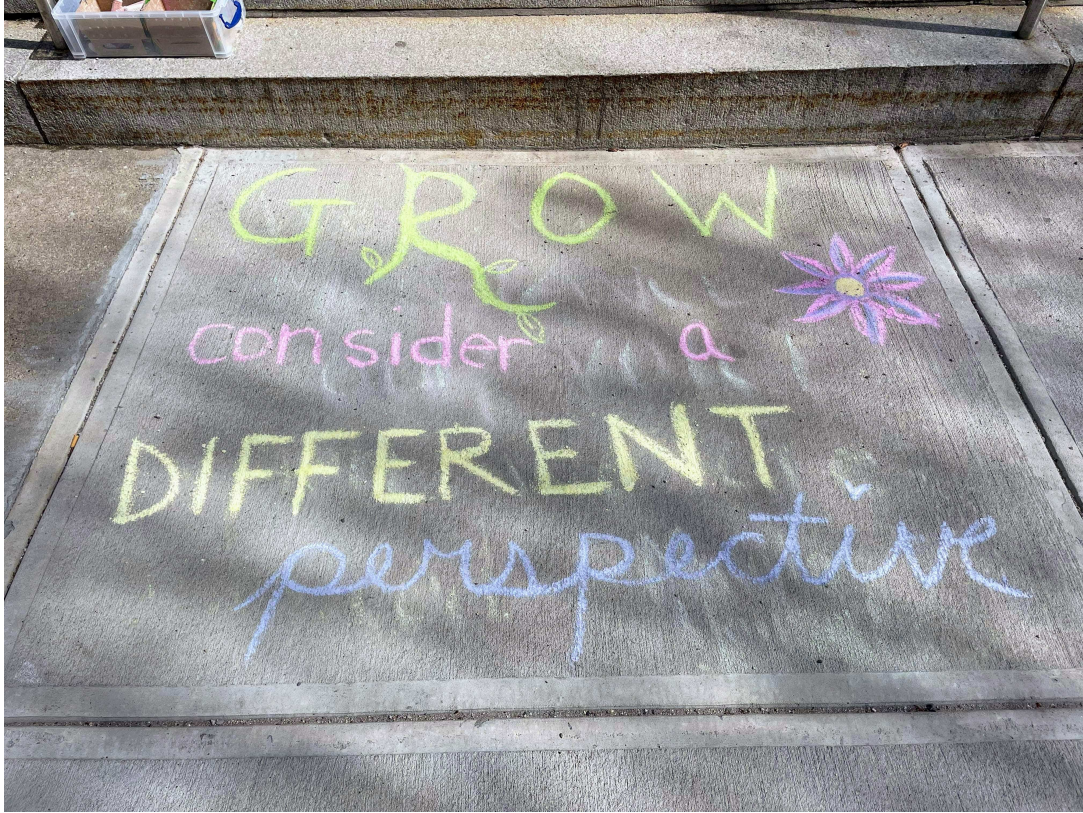 GROW
consider a
DIFFERENT
perspective